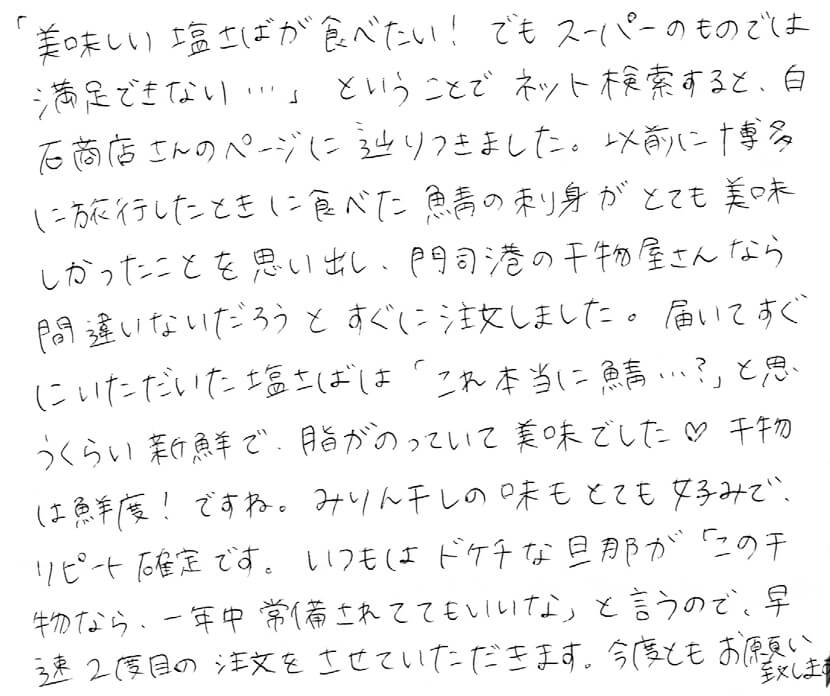 「美味しい塩さばが食べたい！でもスーパーのものでは
満足できない…」ということでネット検索すると、白
石商店さんのページに辿りつきました。以前に博多
に旅行したときに食べた鯖の刺身がとても美味
しかったことを思い出し、門司港の干物屋さんなら
間違いないだろうとすぐに注文しました。届いてすぐ
にいただいた塩さばは「これ本当に鯖…？」と思
うくらい新鮮で、脂がのっていて美味でした♡干物
は鮮度！ですね。みりん干しの味もとても好みで、
リピート確定です。いつもはドケチな旦那が「この干
物なら、一年中常備されててもいいな」と言うので、早
速2度目の注文をさせていただきます。今度ともお願い
致します